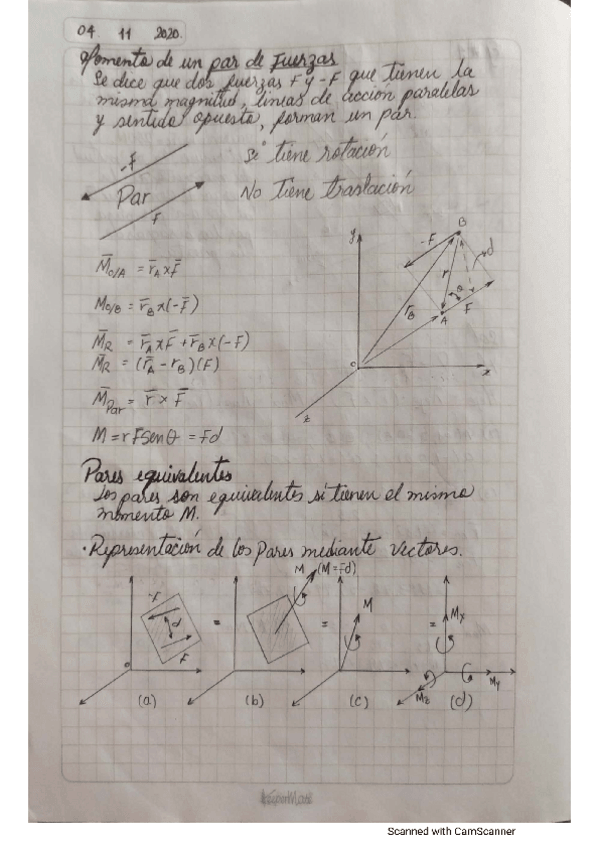 04 11 2020.
Momento de un par de Fuerzas
Se dice que dos fuerzas F y -F que tienen la
misma magnitud, líneas de acción paralelas
y sentido opuesto, forman un par.
-F
Par
F
Si tiene rotación
No tiene traslación
y
B
-F
d
r
θ
r_B
A
F
o
x
z
M̄o/A = r̄_A x F̄
Mo/B = r̄_B x (-F̄)
M̄_R = r̄_A x F̄ + r̄_B x (-F)
M̄_R = (r̄_A - r_B)(F)
M̄_Par = r̄ x F̄
M = r F Sen θ = Fd
Pares equivalentes
Los pares son equivalentes si tienen el mismo
momento M.
· Representación de los Pares mediante Vectores.
-F
d
F
o
(a)
=
M (M=Fd)
(b)
=
M
(c)
=
Mx
My
Mz
(d)
Scanned with CamScanner